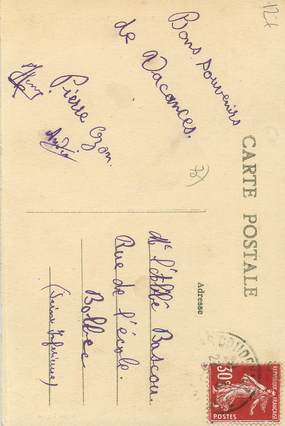 12f
Bons souvenirs
de Vacances.
Pierre Ozon.
CARTE POSTALE
Adresse
Mr l'Abbé Bascou
Rue de l'école.
Bolbec
(Seine Inférieure)
REPUBLIQUE FRANÇAISE
30c
POSTES